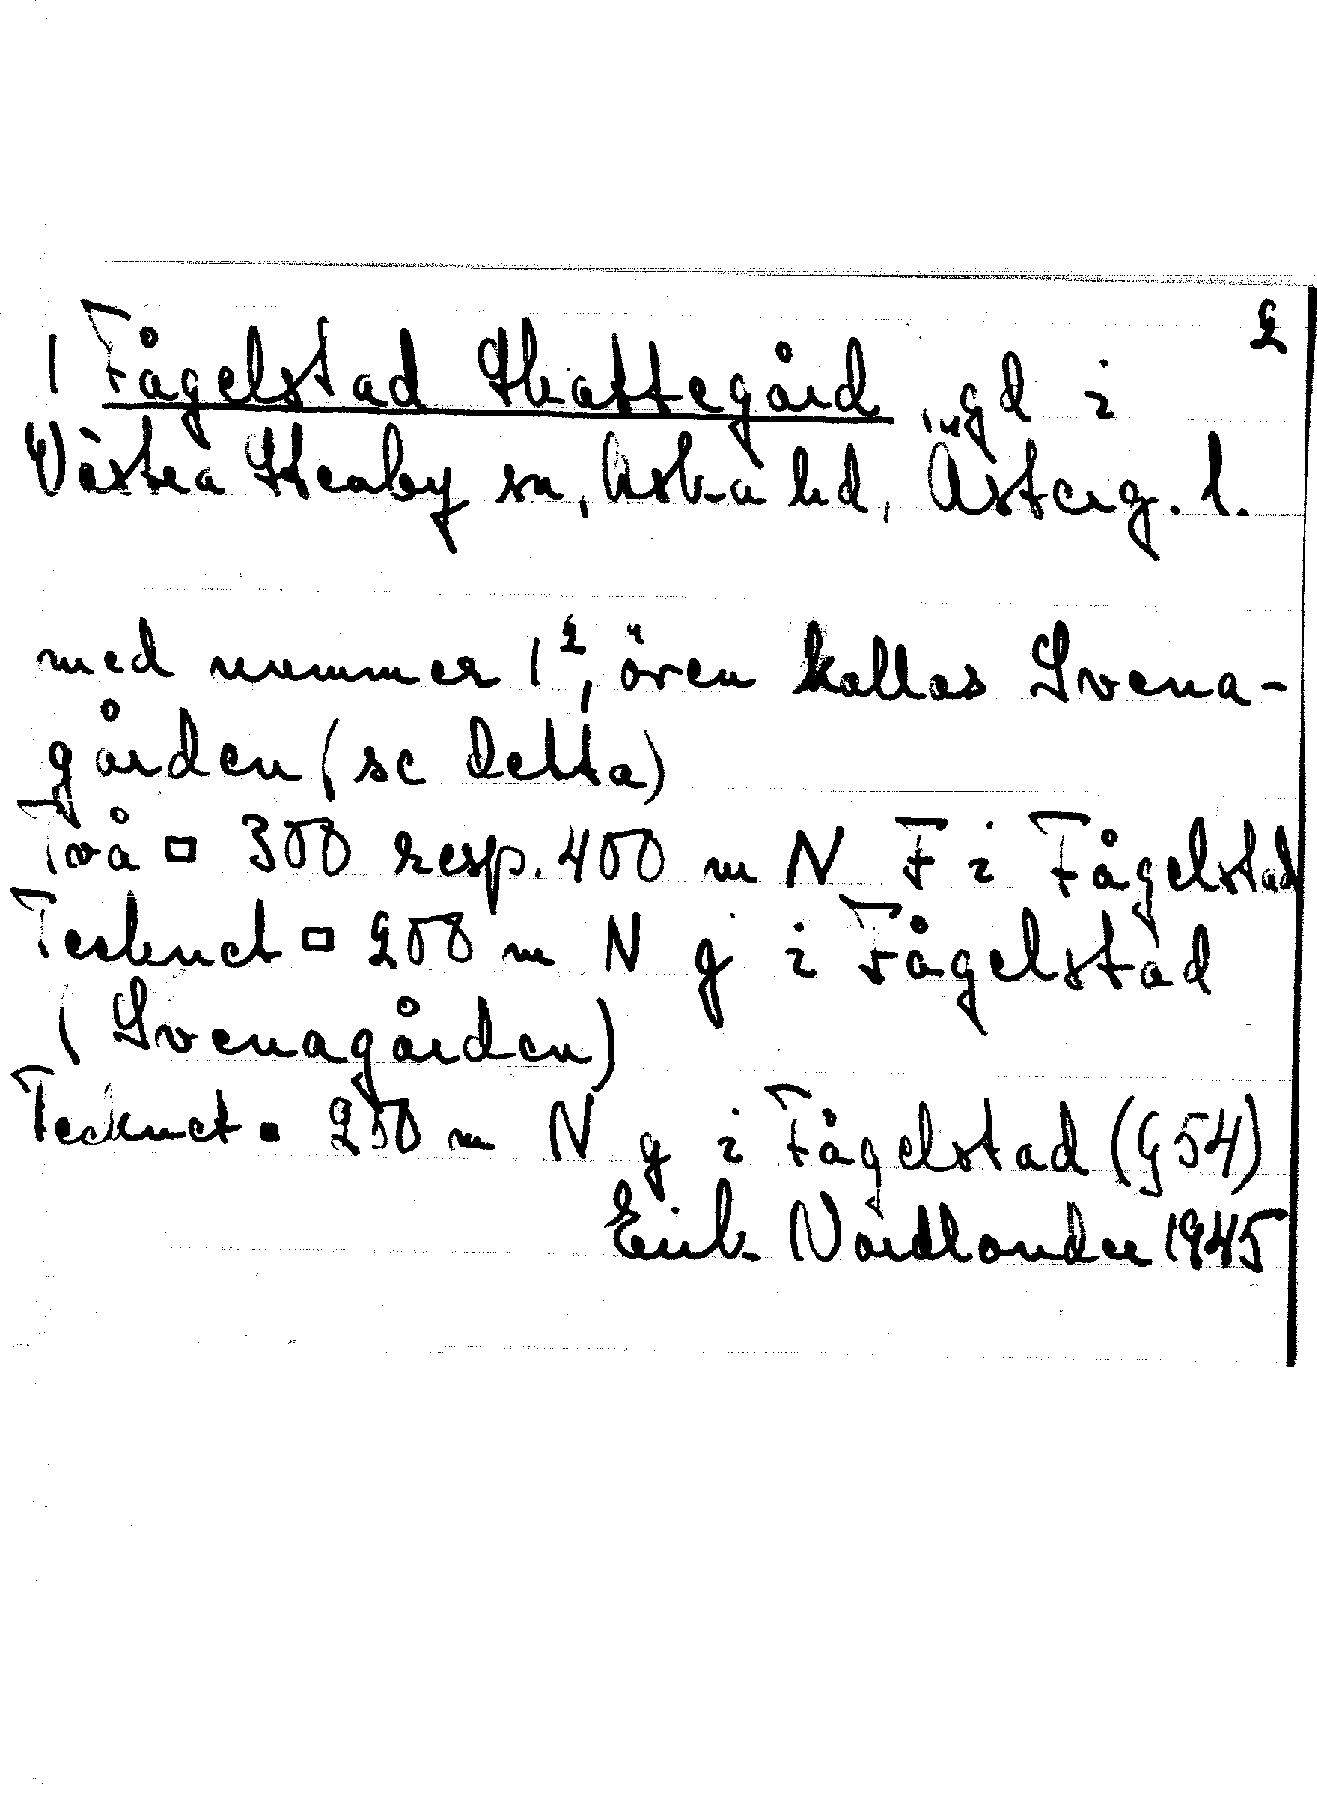 2
1 Fågelstad Skattegård, gd i
Västra Stenby sn, Aska hd, Österg. l.
med nummer 1², även kallas Svena-
gården (se detta)
Två □ 300 resp. 400 m N F i Fågelstad
Tecknet □ 200 m N g i Fågelstad
(Svenagården)
Tecknet ▪ 250 m N g i Fågelstad (G54)
Erik Nordlander 1945